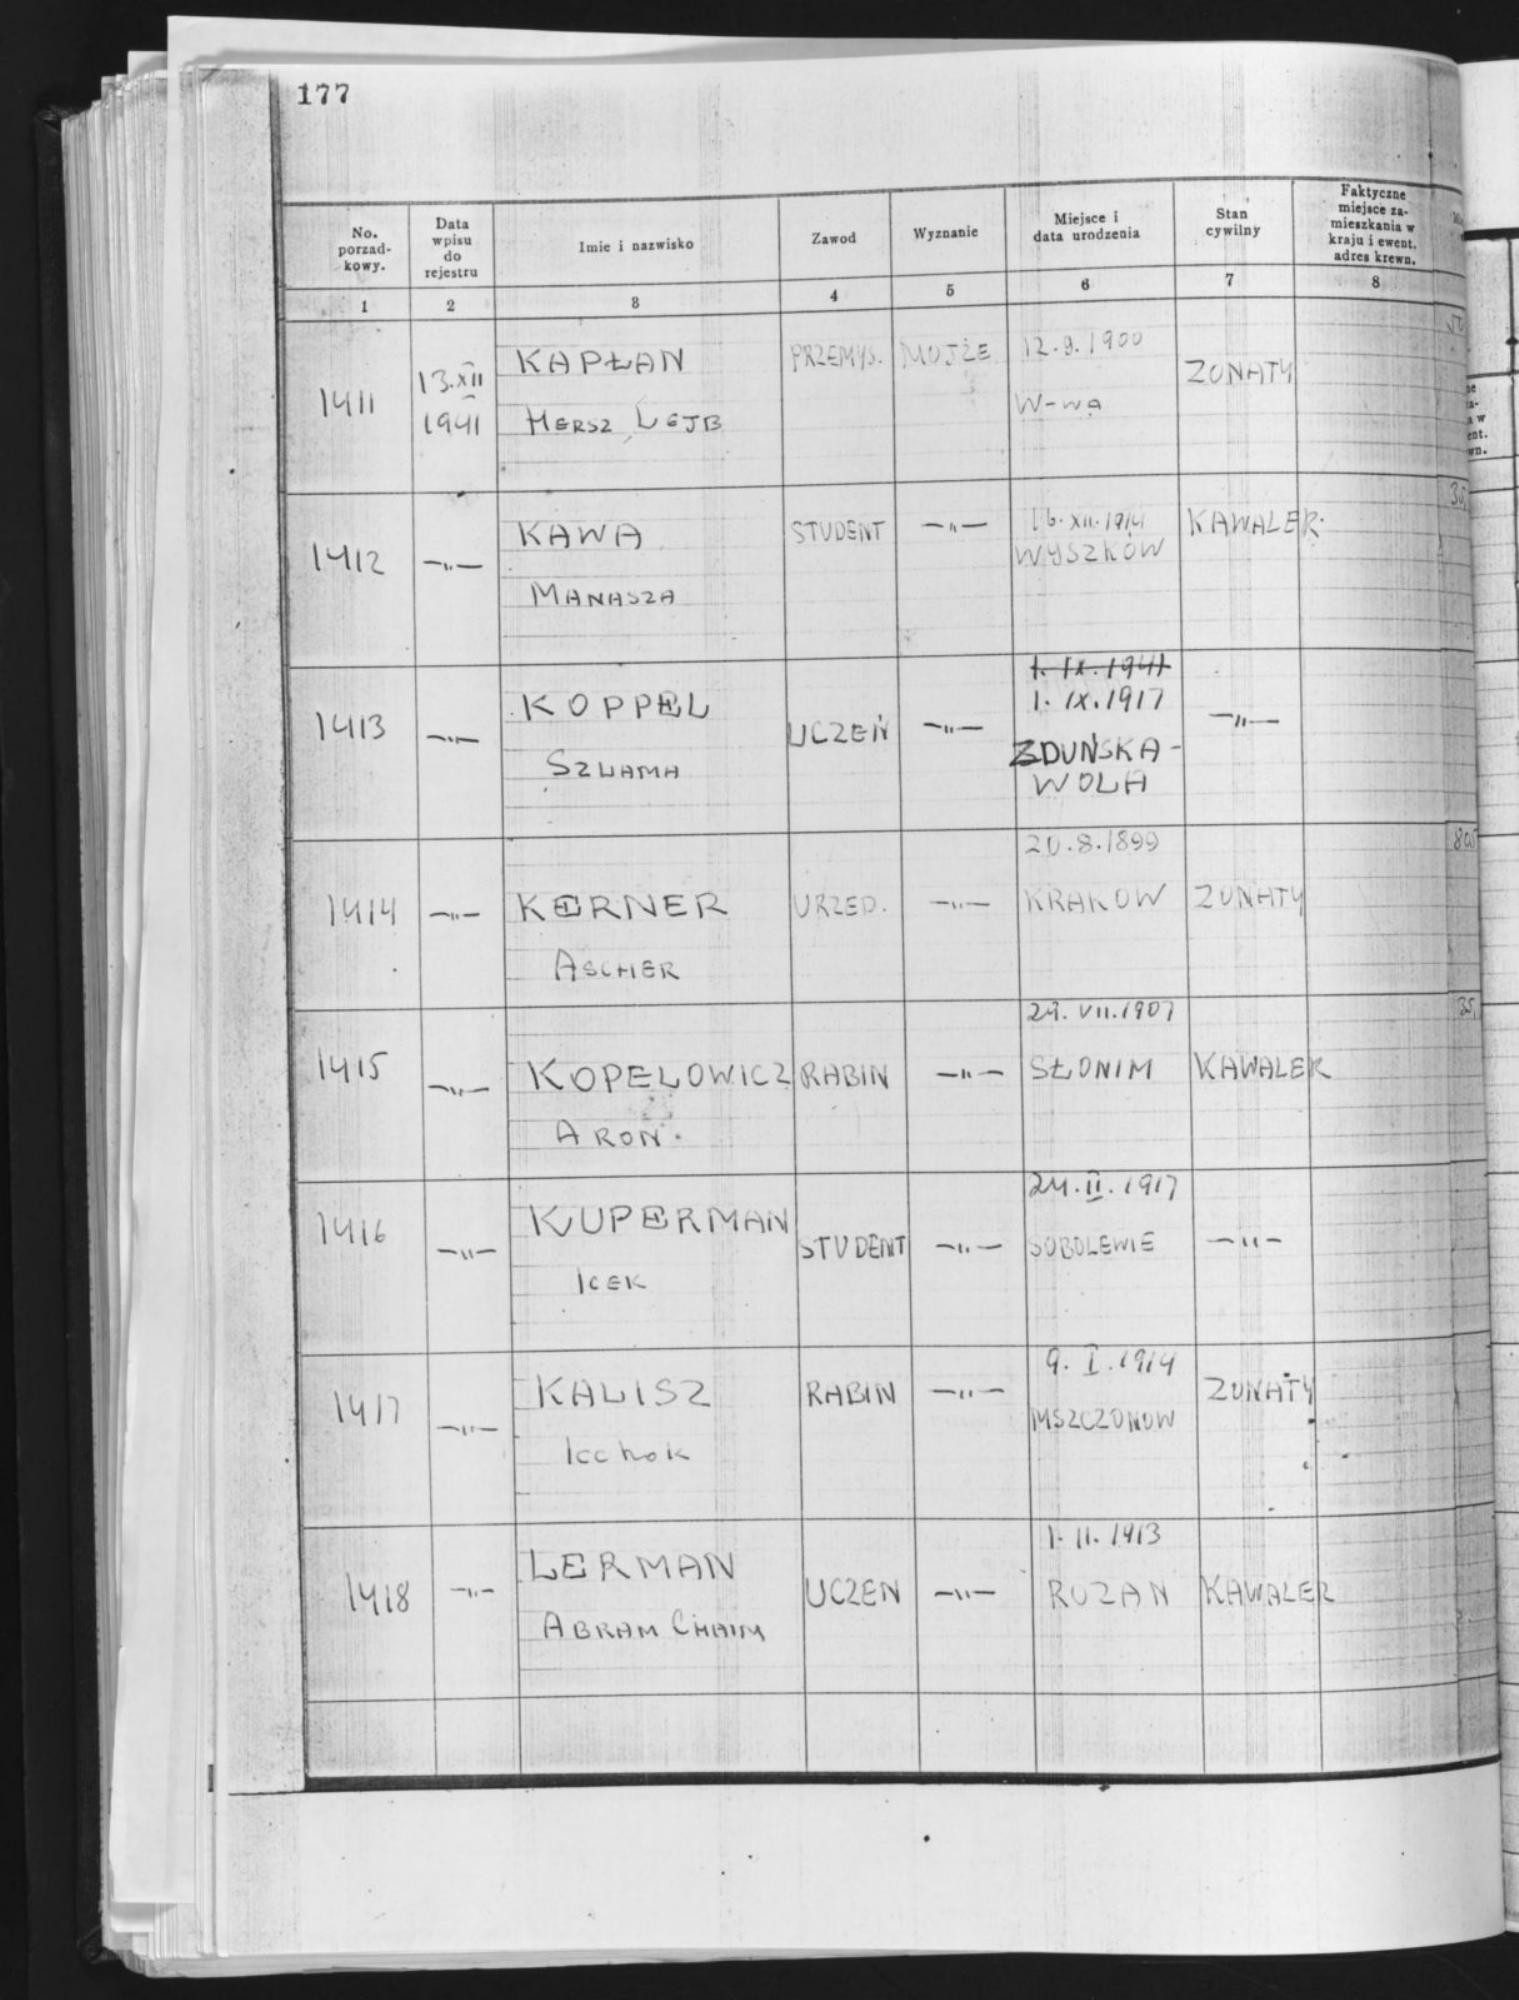 177
No. porzad- kowy.
Data wpisu do rejestru
Imie i nazwisko
Zawod
Wyznanie
Miejsce i data urodzenia
Stan cywilny
Faktyczne miejsce za- mieszkania w kraju i ewent. adres krewn.
1 2 3 4 5 6 7 8
1411
13.XII
1941
KAPŁAN
HERSZ LEJB
PRZEMYS.
MOJŻE
12.9.1900
W-wa
ZONATY
1412
—"—
KAWA
MANASZA
STUDENT
—"—
16.XII.1914
WYSZKÓW
KAWALER.
1413
—"—
KOPPEL
SZLAMA
UCZEŃ
—"—
1. IX. 1941
1. IX. 1917
ZDUŃSKA-
WOLA
—"—
1414
—"—
KERNER
ASCHER
URZED.
—"—
20.8.1899
KRAKOW
ZONATY
1415
—"—
KOPELOWICZ
ARON.
RABIN
—"—
SŁONIM
KAWALER
1416
—"—
KUPERMAN
ICEK
STUDENT
—"—
24.II.1917
SOBOLEWIE
—"—
1417
—"—
KALISZ
Icchok
RABIN
—"—
9. I. 1914
MSZCZONOW
ZONATY
1418
—"—
LERMAN
ABRAM CHAIM
UCZEN
—"—
1. II. 1913
ROZAN
KAWALER